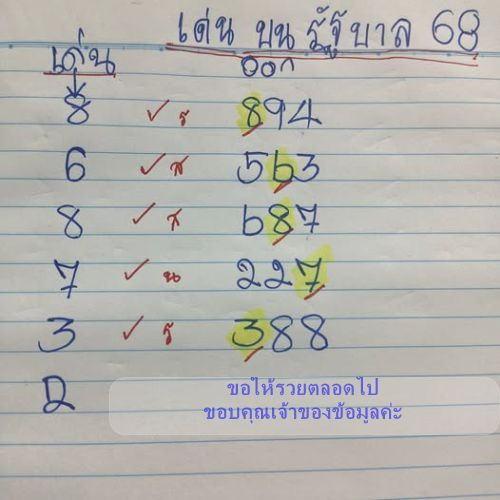 เด่น บน รัฐบาล 68
เด่น ออก
8 ✓ ร 894
6 ✓ ส 563
8 ✓ ส 687
7 ✓ น 227
3 ✓ ร 388
2
ขอให้รวยตลอดไป
ขอบคุณเจ้าของข้อมูลค่ะ